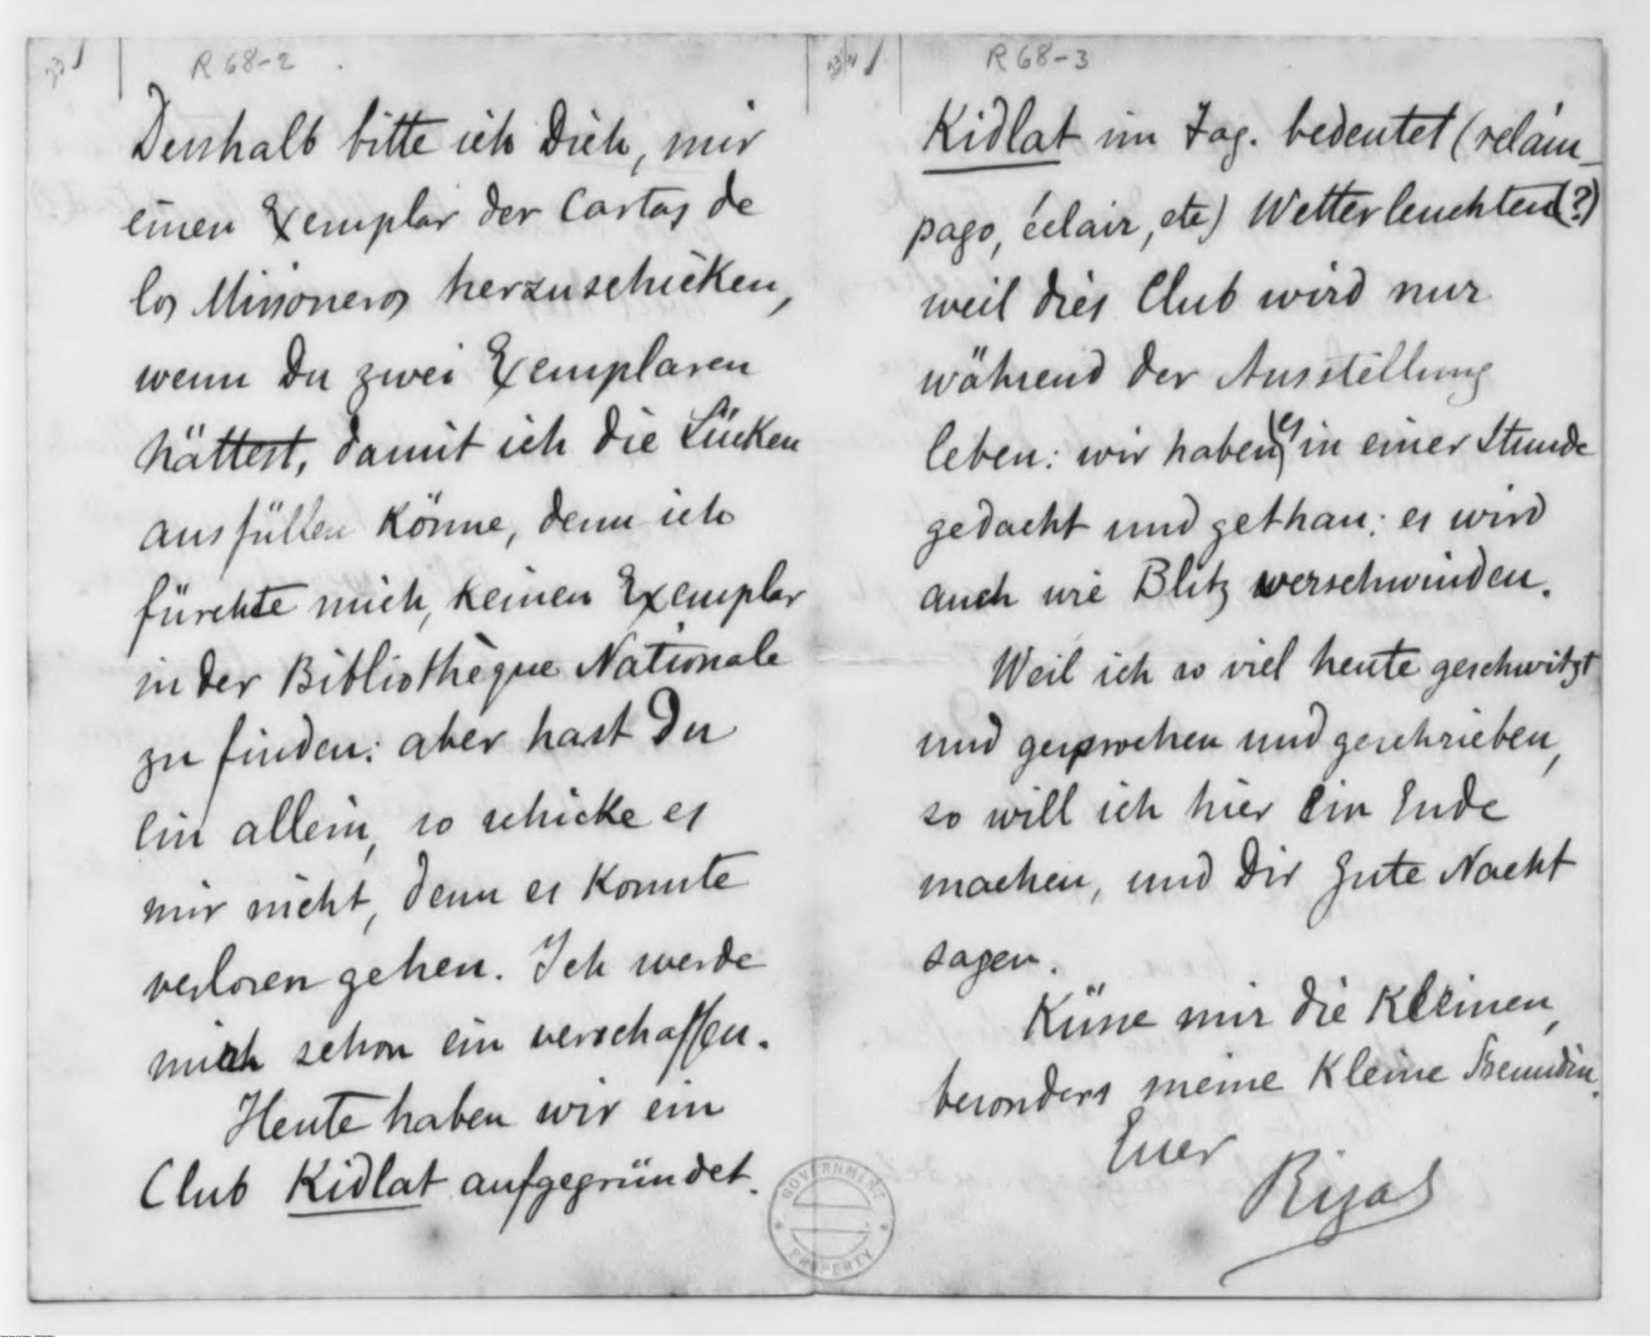 R 68-2
Desshalb bitte ich Dich, mir
einen Exemplar der Cartas de
los Missioneros herzuschicken,
wenn Du zwei Exemplaren
hättest, damit ich die Lücken
ausfüllen könne, denn ich
fürchte mich, keinen Exemplar
in der Bibliothèque Nationale
zu finden: aber hast Du
ein allein, so schicke es
mir nicht, denn es konnte
verloren gehen. Ich werde
mich schon ein verschaffen.
Heute haben wir ein
Club Kidlat aufgegründet.
R 68-3
Kidlat im Tag. bedeutet (relám-
pago, éclair, etc) Wetterleuchten(?)
weil dies Club wird nur
während der Ausstellung
leben: wir haben es in einer Stunde
gedacht und gethan: es wird
auch wie Blitz verschwinden.
Weil ich so viel heute geschwitzt
und gesprochen und geschrieben,
so will ich hier ein Ende
machen, und Dir Gute Nacht
sagen.
Küsse mir die Kleinen,
besonders meine Kleine Freundin.
Euer
Rizal
GOVERNMENT
PROPERTY